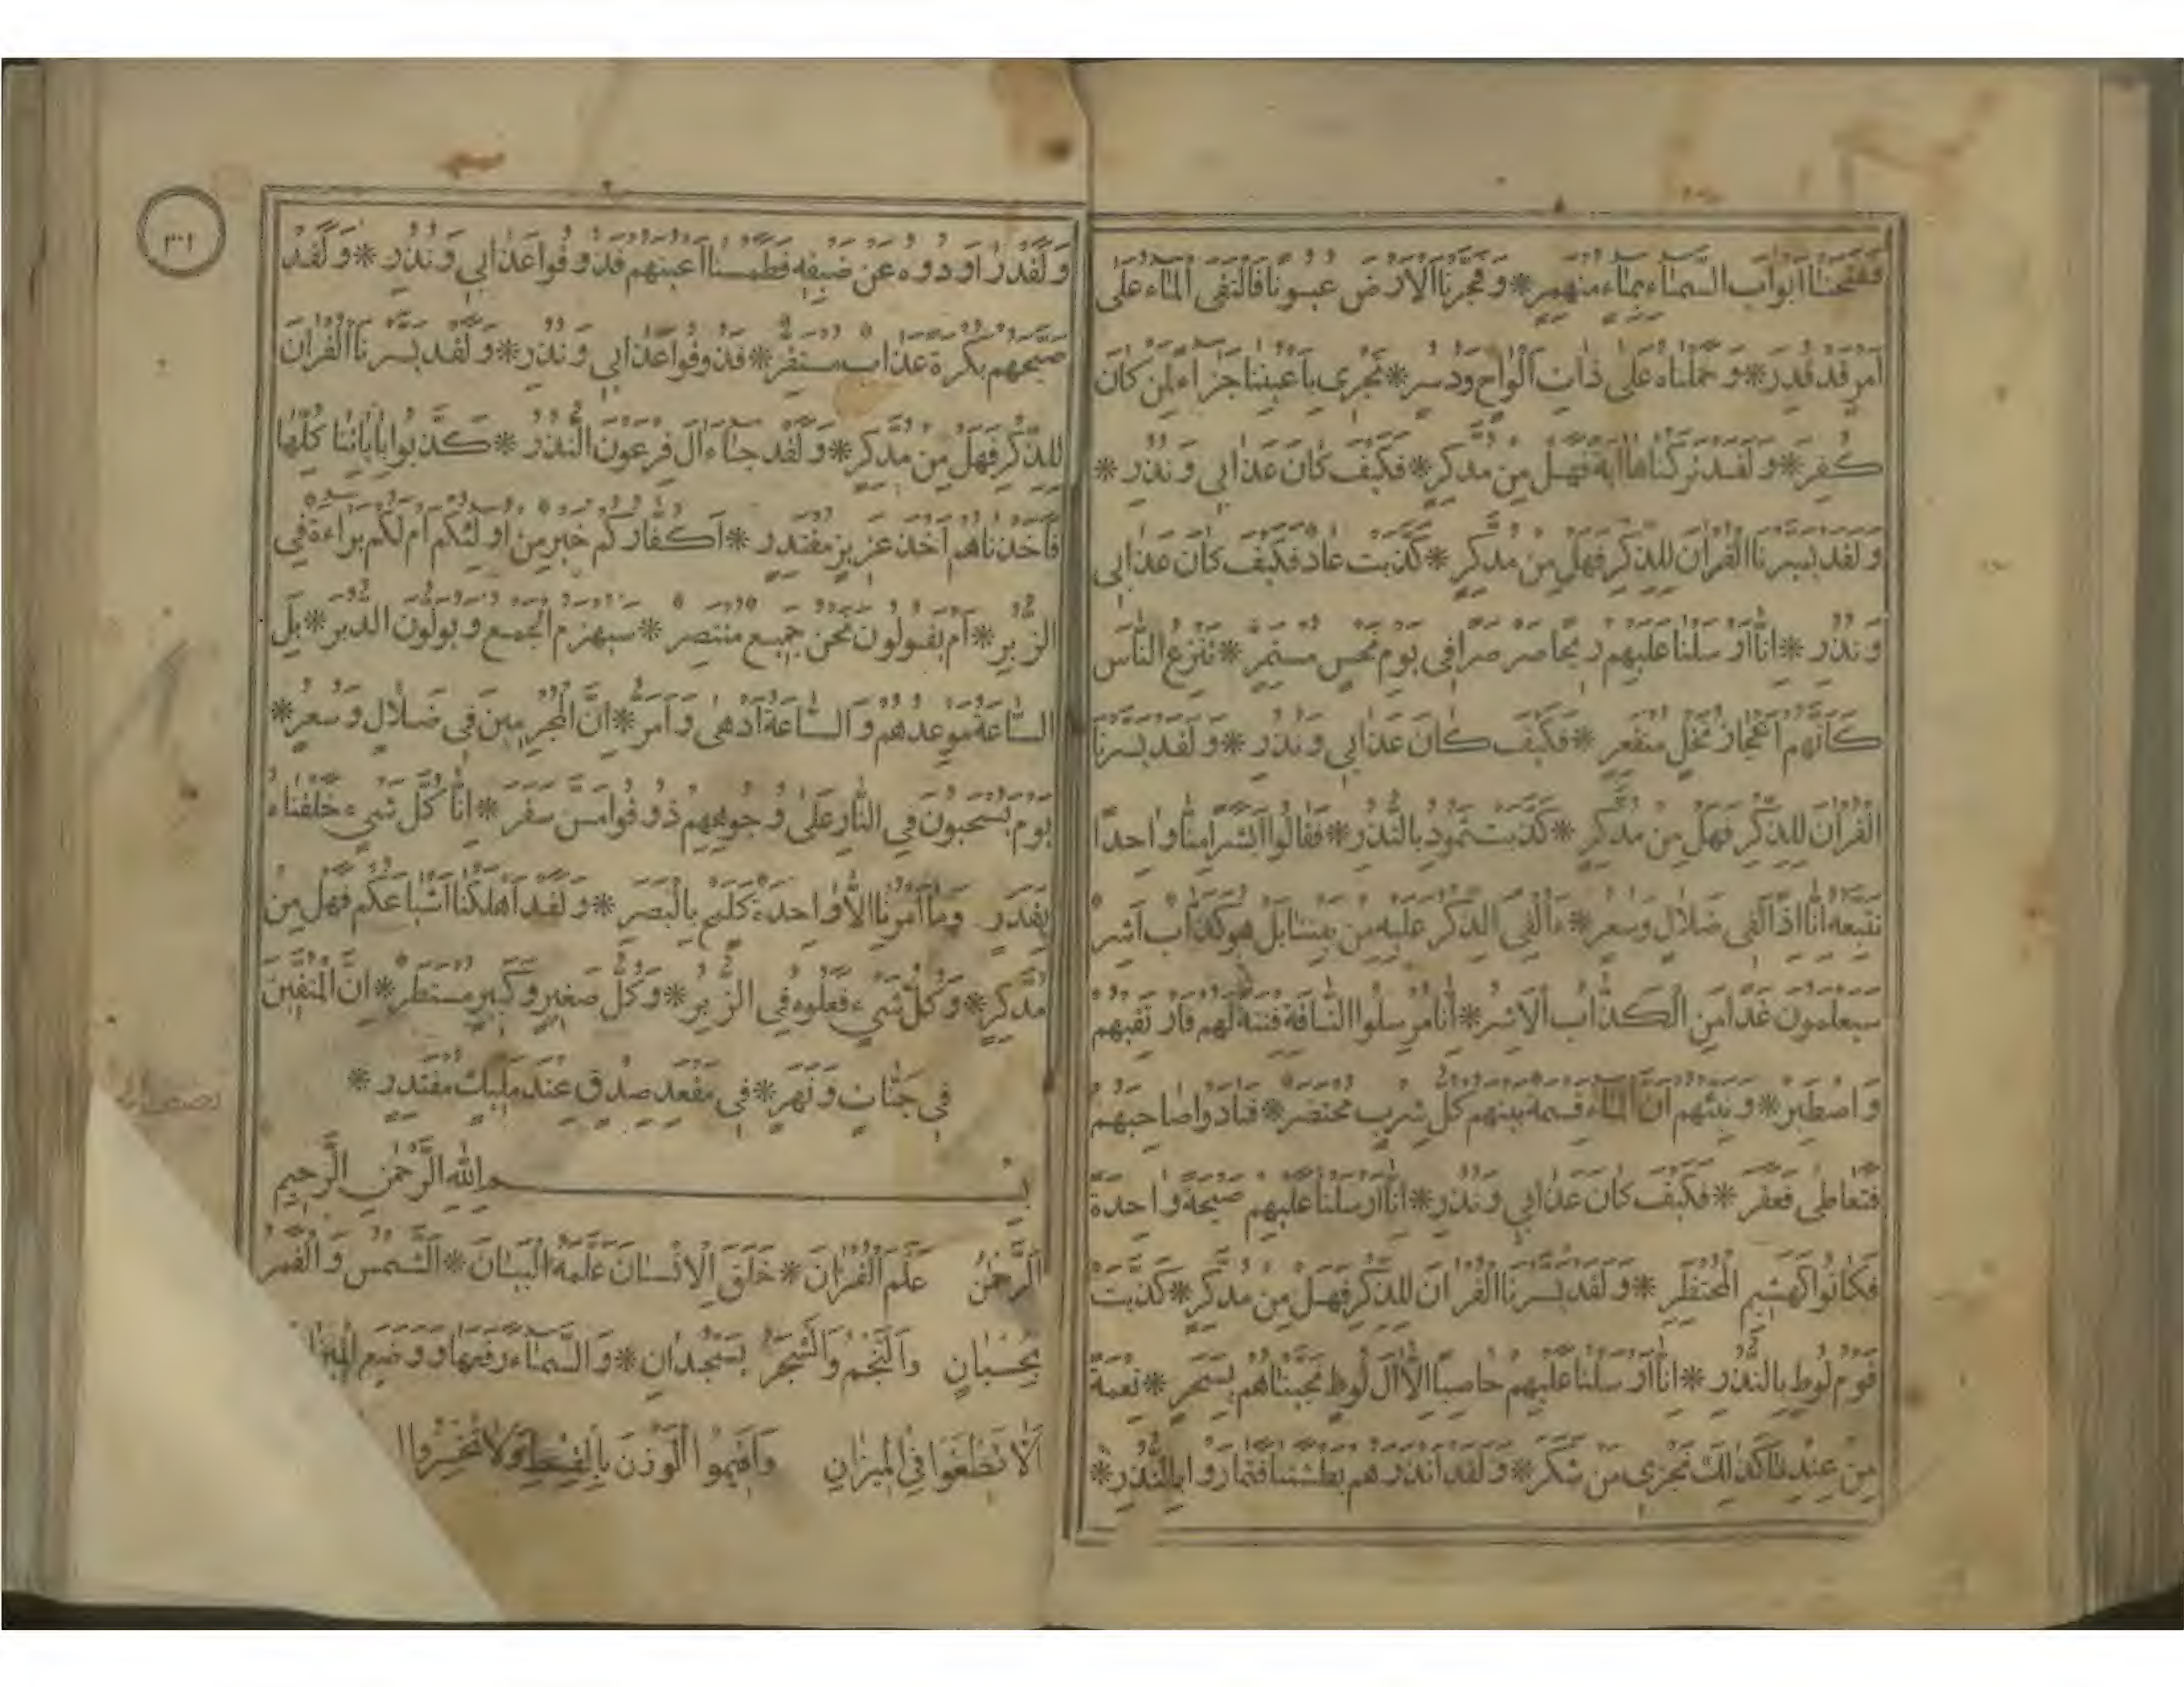 ففتحنا ابواب السماء بماء منهمر * وفجرنا الارض عيونا فالتقى الماء على
امر قد قدر * وحملناه على ذات الواح ودسر * تجرى باعيننا جزاء لمن كان
كفر * ولقد تركناها اية فهل من مدكر * فكيف كان عذابى ونذر *
ولقد يسرنا القران للذكر فهل من مدكر * كذبت عاد فكيف كان عذابى
ونذر * انا ارسلنا عليهم ريحا صرصرا فى يوم نحس مستمر * تنزع الناس
كانهم اعجاز نخل منقعر * فكيف كان عذابى ونذر * ولقد يسرنا
القران للذكر فهل من مدكر * كذبت ثمود بالنذر * فقالوا ابشرا منا واحدا
نتبعه انا اذا لفى ضلال وسعر * ءالقى الذكر عليه من بيننا بل هو كذاب اشر
سيعلمون غدا من الكذاب الاشر * انا مرسلوا الناقة فتنة لهم فارتقبهم
واصطبر * ونبئهم ان الماء قسمة بينهم كل شرب محتضر * فنادوا صاحبهم
فتعاطى فعقر * فكيف كان عذابى ونذر * انا ارسلنا عليهم صيحة واحدة
فكانوا كهشيم المحتظر * ولقد يسرنا القران للذكر فهل من مدكر * كذبت
قوم لوط بالنذر * انا ارسلنا عليهم حاصبا الا ال لوط نجيناهم بسحر * نعمة
من عندنا كذلك نجزى من شكر * ولقد انذرهم بطشتنا فتماروا بالنذر *
٣٠١
ولقد راودوه عن ضيفه فطمسنا اعينهم فذوقوا عذابى ونذر * ولقد
صبحهم بكرة عذاب مستقر * فذوقوا عذابى ونذر * ولقد يسرنا القران
للذكر فهل من مدكر * ولقد جاء ال فرعون النذر * كذبوا باياتنا كلها
فاخذناهم اخذ عزيز مقتدر * اكفاركم خير من اولئكم ام لكم براءة فى
الزبر * ام يقولون نحن جميع منتصر * سيهزم الجمع ويولون الدبر * بل
الساعة موعدهم والساعة ادهى وامر * ان المجرمين فى ضلال وسعر *
يوم يسحبون فى النار على وجوههم ذوقوا مس سقر * انا كل شىء خلقناه
بقدر وما امرنا الا واحدة كلمح بالبصر * ولقد اهلكنا اشياعكم فهل من
مدكر * وكل شىء فعلوه فى الزبر * وكل صغير وكبير مستطر * ان المتقين
فى جنات ونهر * فى مقعد صدق عند مليك مقتدر *
بسم الله الرحمن الرحيم
الرحمن علم القران * خلق الانسان علمه البيان * الشمس والقمر
بحسبان والنجم والشجر يسجدان * والسماء رفعها ووضع الميزان
الا تطغوا فى الميزان واقيموا الوزن بالقسط ولا تخسروا